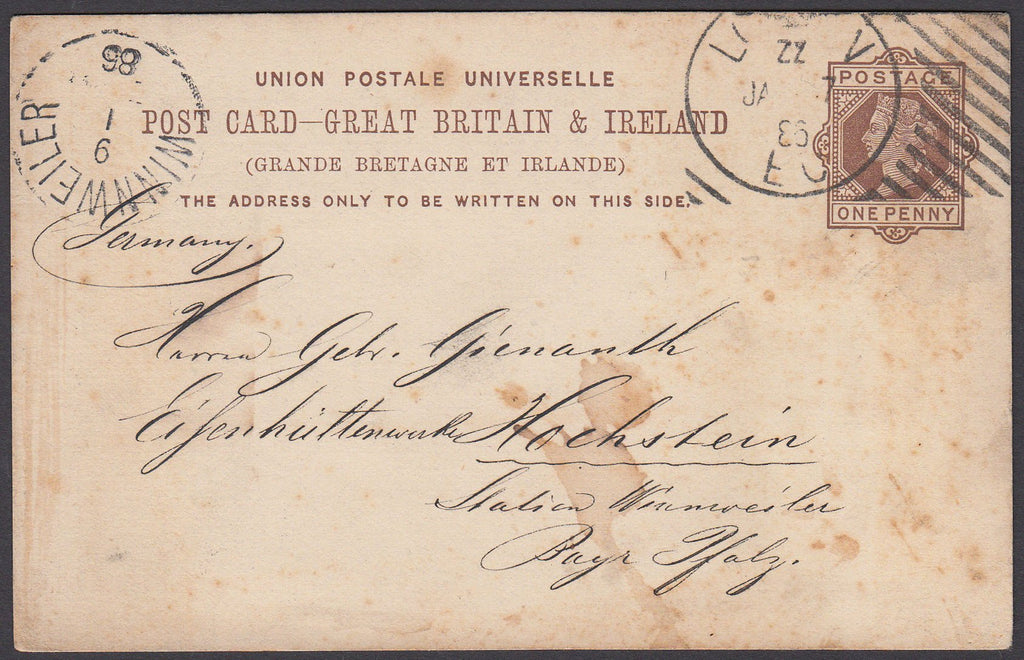 WINNWEILER
9
1
86
LO V
ZZ
JA 7
86
E C
UNION POSTALE UNIVERSELLE
POST CARD—GREAT BRITAIN & IRELAND
(GRANDE BRETAGNE ET IRLANDE)
THE ADDRESS ONLY TO BE WRITTEN ON THIS SIDE.
POSTAGE
ONE PENNY
Germany.
Herren Gebr. Gienanth
Eisenhüttenwerke Hochstein
Station Winnweiler
Bayr Pfalz.